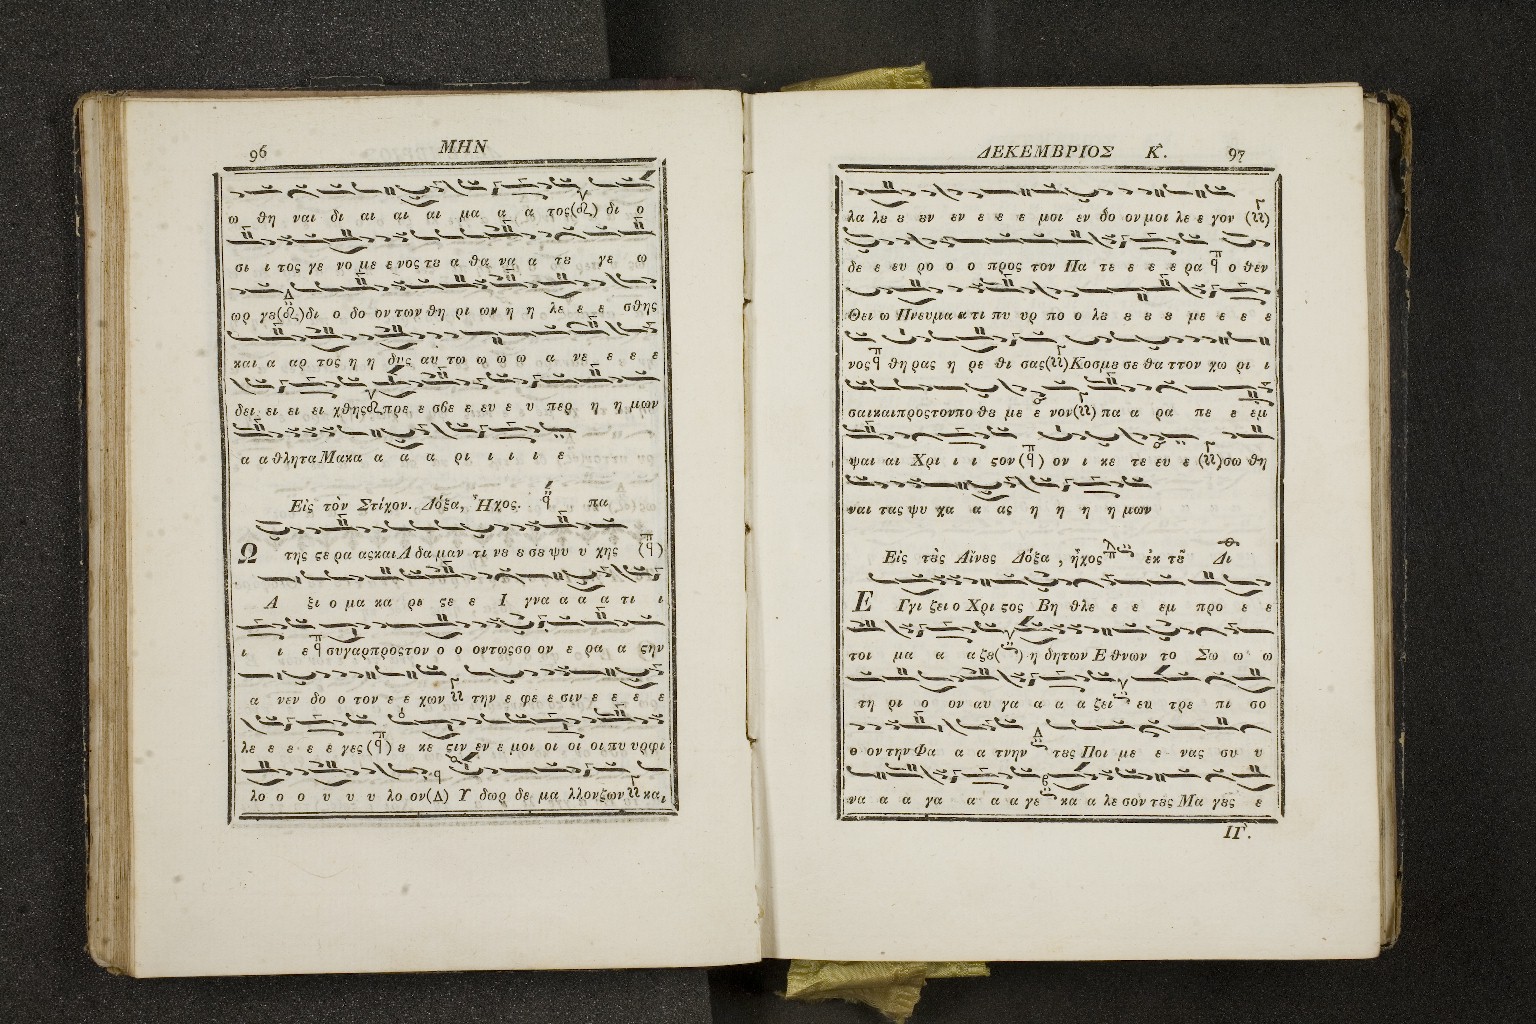 96 ΜΗΝ
ω θη ναι δι αι αι αι μα α α τος δι ο
σι ι τος γε νο με ε νος τȣ α θα να α τȣ γε ω
ωρ γȣ δι ο δο ον των θη ρι ων η η λε ε ε σθης
και α αρ τος η η δυς αυ τω ω ω ω α νε ε ε ε
δει ει ει ει χθης πρε ε σβε ε ευ ε υ περ η η μων
α α θλητα Μακα α α α ρι ι ι ι ε
Εἰς τὸν Στίχον. Δόξα, Ἦχος. πα
Ω της ϛε ρα ας και Α δα μαν τι νȣ ȣ σȣ ψυ υ χης
Α ξι ο μα κα ρι ϛε ε Ι γνα α α α τι ι
ι ι ε συ γαρ προς τον ο ο οντως σο ον ε ρα α ϛην
α νεν δο ο τον ε ε χων την ε φε ε σιν ε ε ε ε
λε ε ε ε ε γες ȣ κε ϛιν εν ε μοι οι οι οι πυ υρ φι
λο ο ο υ υ υ λο ον (Δ) Υ δωρ δε μα λλον ζων και
ΔΕΚΕΜΒΡΙΟΣ Κ. 97
λα λȣ ȣ εν εν ε ε ε μοι εν δο ον μοι λε ε γον
δε ε ευ ρο ο ο προς τον Πα τε ε ε ε ρα ο θεν
Θει ω Πνευμα α τι πυ υρ πο ο λȣ ȣ ȣ ȣ με ε ε ε
νος θη ρας η ρε θι σας Κοσμȣ σε θα ττον χω ρι ι
σαι και προς τον πο θȣ με ε νον πα α ρα πε ε εμ
ψαι αι Χρι ι ι ϛον ον ι κε τε ευ ε σω θη
ναι τας ψυ χα α ας η η η η μων
Εἰς τȣς Αἴνȣς Δόξα, ἦχος ἐκ τȣ͂ Δι
Ε Γγι ζει ο Χρι ϛος Βη θλε ε ε εμ προ ε ε
τοι μα α α ζȣ η δη των Ε θνων το Σω ω ω
τη ρι ο ον αυ γα α α α ζει ευ τρε πι σο
ο ον την Φα α α τνην τȣς Ποι με ε νας συ υ
να α α γα α α α γε κα α λε σον τȣς Μα γȣς ε
ΙΓ.